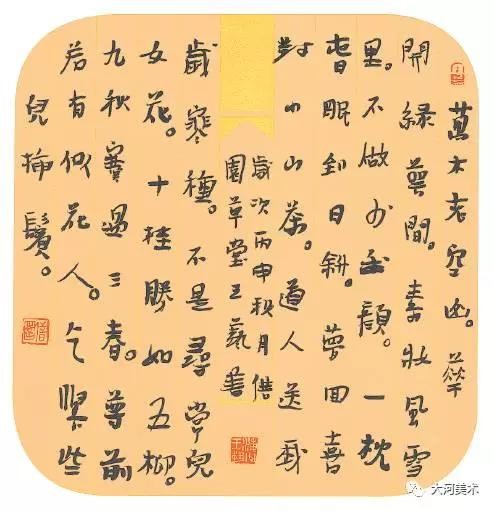 萬木老空山。花
開綠萼間。素妝風雪
里。不做少年顏。一枕
春眠到日斜。夢回喜
對小山茶。道人送我
歲次丙申秋月借
園草堂王書
歲寒種。不是尋常兒
女花。十桂勝如五柳。
九秋賽過三春。尊前
若有似花人。乞與些
兒插鬢。
大河美术